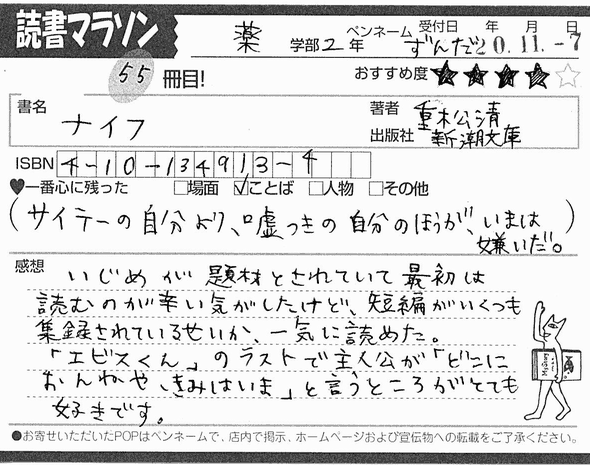 読書マラソン
薬 学部2年 ペンネーム ずんだ 受付日 年 月 日 20.11.-7
55冊目!
おすすめ度★★★★☆
書名 ナイフ
著者 重松清
出版社 新潮文庫
ISBN 4-10-134913-4
♥一番心に残った □場面 ☑ことば □人物 □その他
(サイテーの自分より、嘘つきの自分のほうが、いまは
嫌いだ。)
感想 いじめが題材とされていて最初は
読むのが辛い気がしたけど、短編がいくつも
集録されているせいか、一気に読めた。
「エビスくん」のラストで主人公が「どこに
おんねや、きみはいま」と言うところがとても
好きです。
●お寄せいただいたPOPはペンネームで、店内で掲示、ホームページおよび宣伝物への転載をご了承ください。